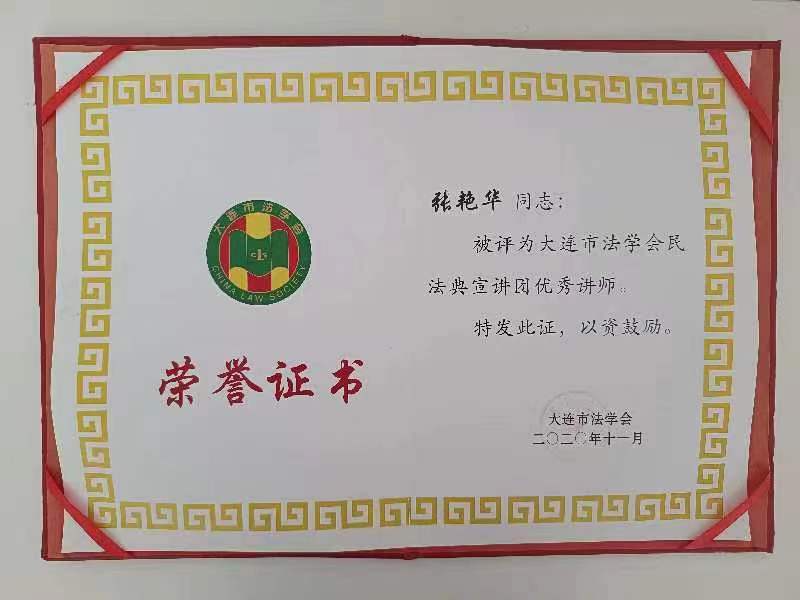 大连市法学会
CHINA LAW SOCIETY
荣誉证书
张艳华 同志：
被评为大连市法学会民
法典宣讲团优秀讲师。
特发此证，以资鼓励。
大连市法学会
二〇二〇年十一月